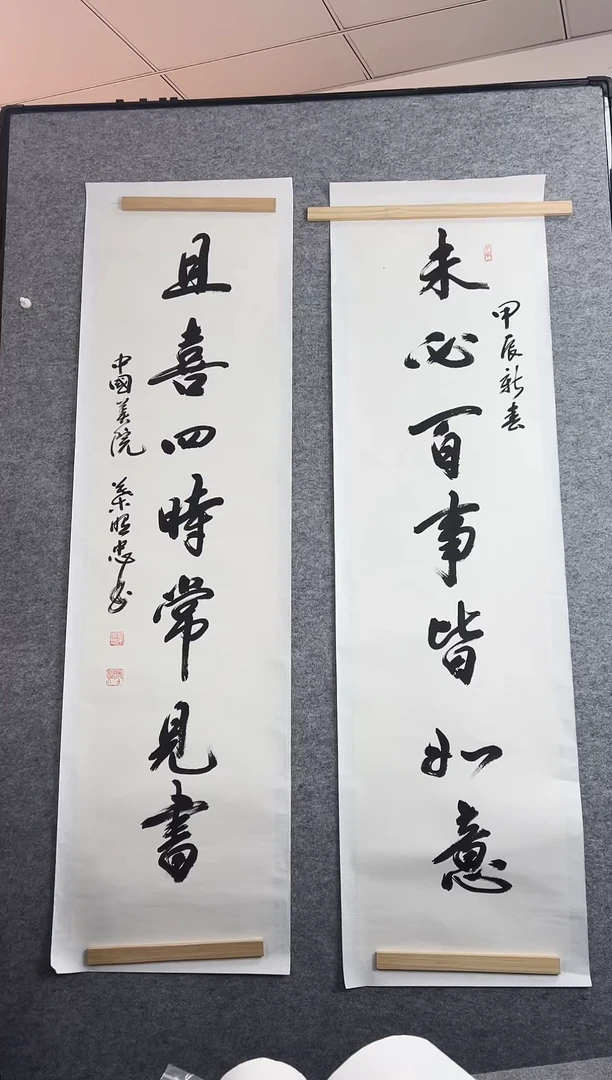 甲辰新春
未必百事皆如意
且喜四時常見書
中國美院